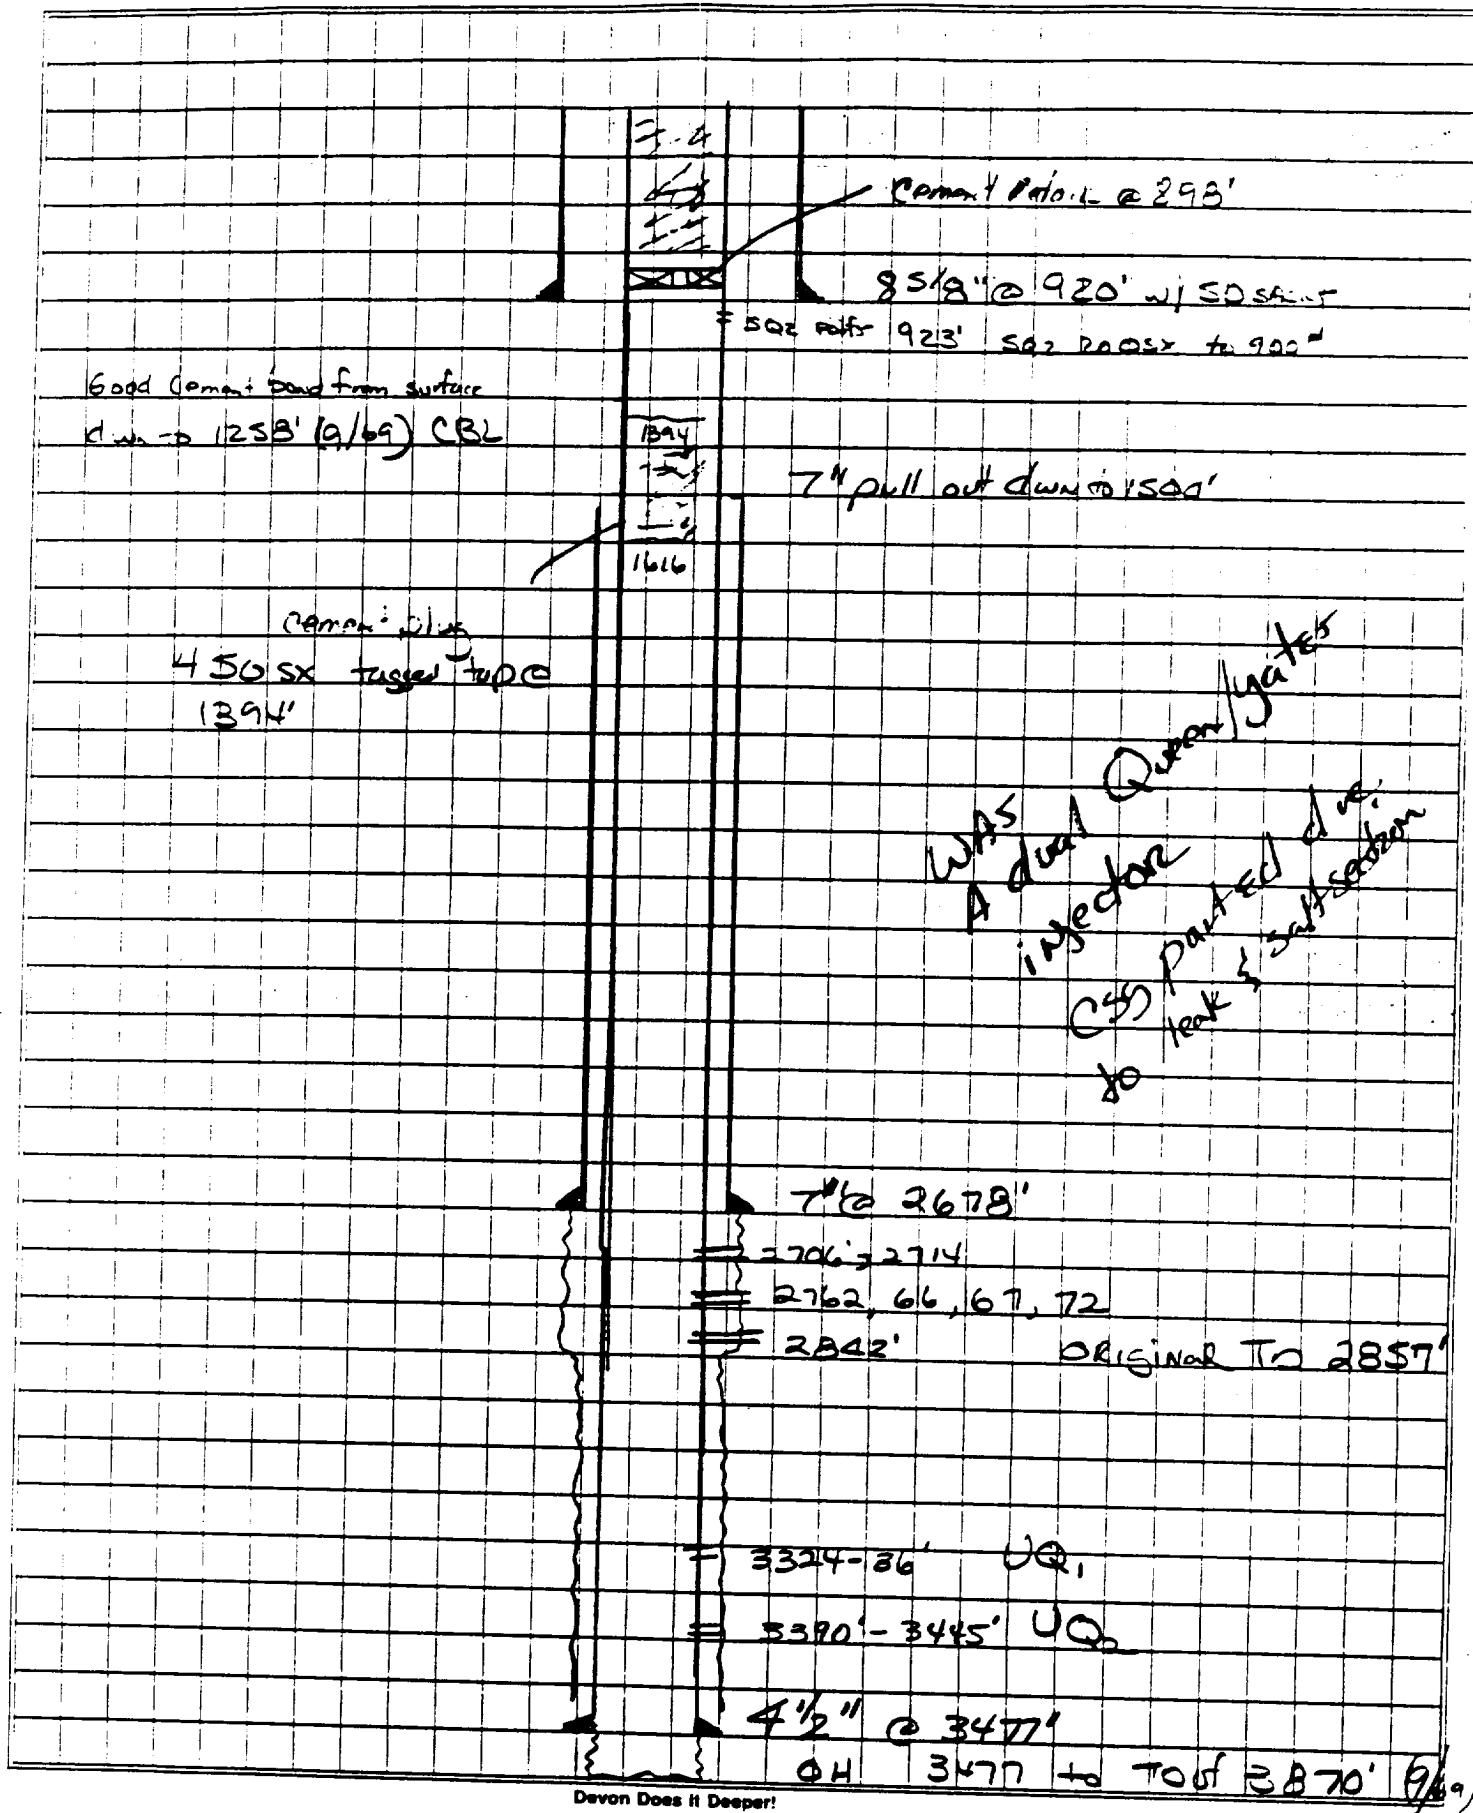 Cement Retain @ 298'
8 5/8" @ 920' w/ 50 sx
SQZ perfs 923' SQZ 200sx to 900'
Good Cement bond from surface
dwn to 1258' (9/69) CBL
1394
7" pull out dwn to 1500'
1616
Cement plug
450 sx tagged top @
1394'
WAS
A dual Queen/Yates
injector
CSG parted due
to leak & salt section
7" @ 2678'
2706'; 2714
2762, 66, 67, 72
2842'
ORIGINAL TD 2857'
3324-36' UQ1
3390'-3445' UQ2
4 1/2" @ 3477'
OH 3477 to TD of 3870' (9/69)
Devon Does It Deeper!